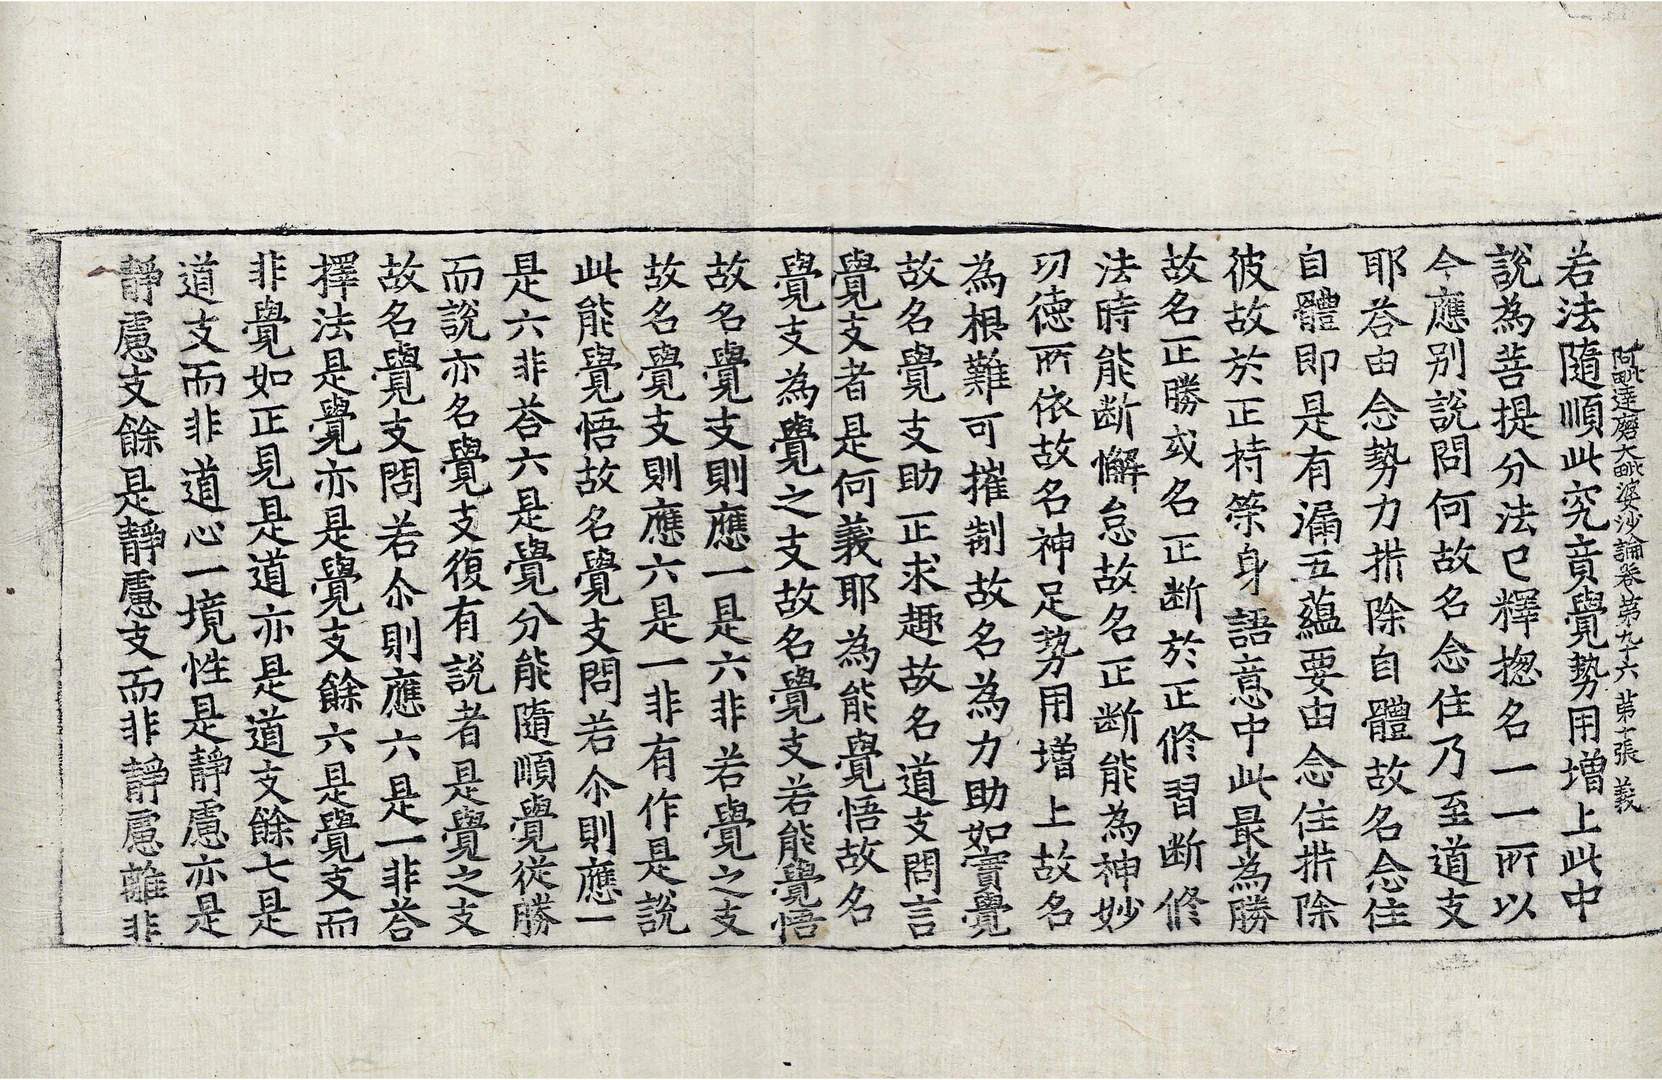 阿毗達磨大毗婆沙論卷第九十六 苐十張 義
若法隨順此究竟覺勢用增上此中
說為菩提分法已釋揔名一一所以
今應別說問何故名念住乃至道支
耶荅由念勢力㭊除自體故名念住
自體即是有漏五蘊要由念住㭊除
彼故於正持䇿身語意中此最為勝
故名正勝或名正断於正修習断修
法時能断懈怠故名正断能為神妙
功德所依故名神足勢用增上故名
為根難可摧制故名為力助如實覺
故名覺支助正求趣故名道支問言
覺支者是何義耶為能覺悟故名
覺支為覺之支故名覺支若能覺悟
故名覺支則應一是六非若覺之支
故名覺支則應六是一非有作是說
此能覺悟故名覺支問若尒則應一
是六非荅六是覺分能隨順覺從勝
而說亦名覺支復有說者是覺之支
故名覺支問若尒則應六是一非荅
擇法是覺亦是覺支餘六是覺支而
非覺如正見是道亦是道支餘七是
道支而非道心一境性是靜慮亦是
靜慮支餘是靜慮支而非靜慮離非